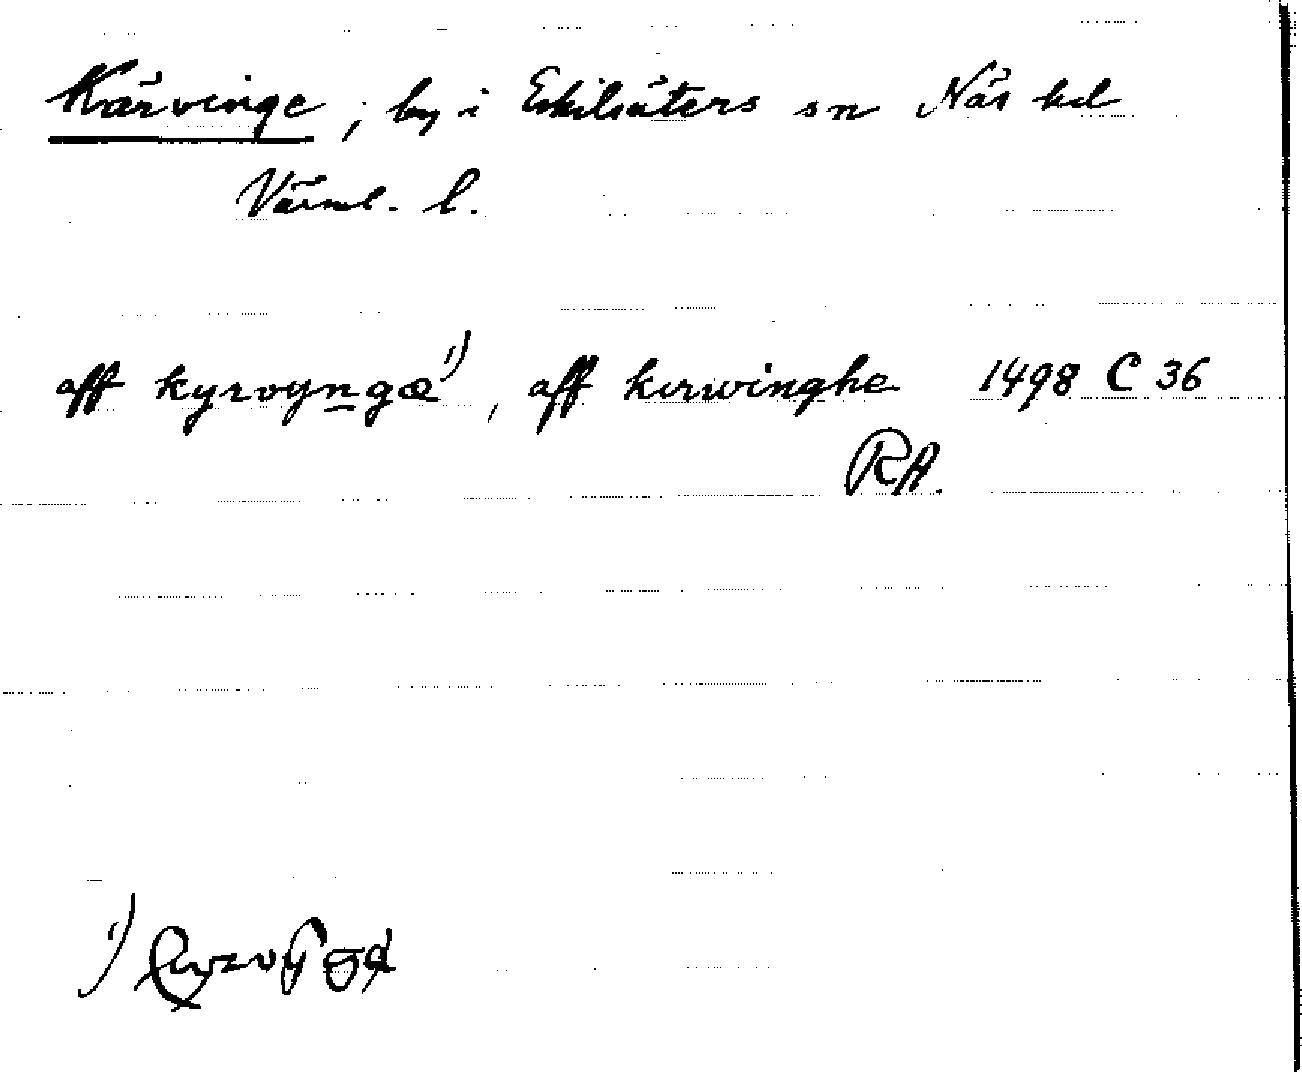 Kärvinge, by i Eskilsäters sn Näs hd
Värml. l.
aff kyrvyngæ 1), aff kirwinghe 1498 C 36
RA.
1)